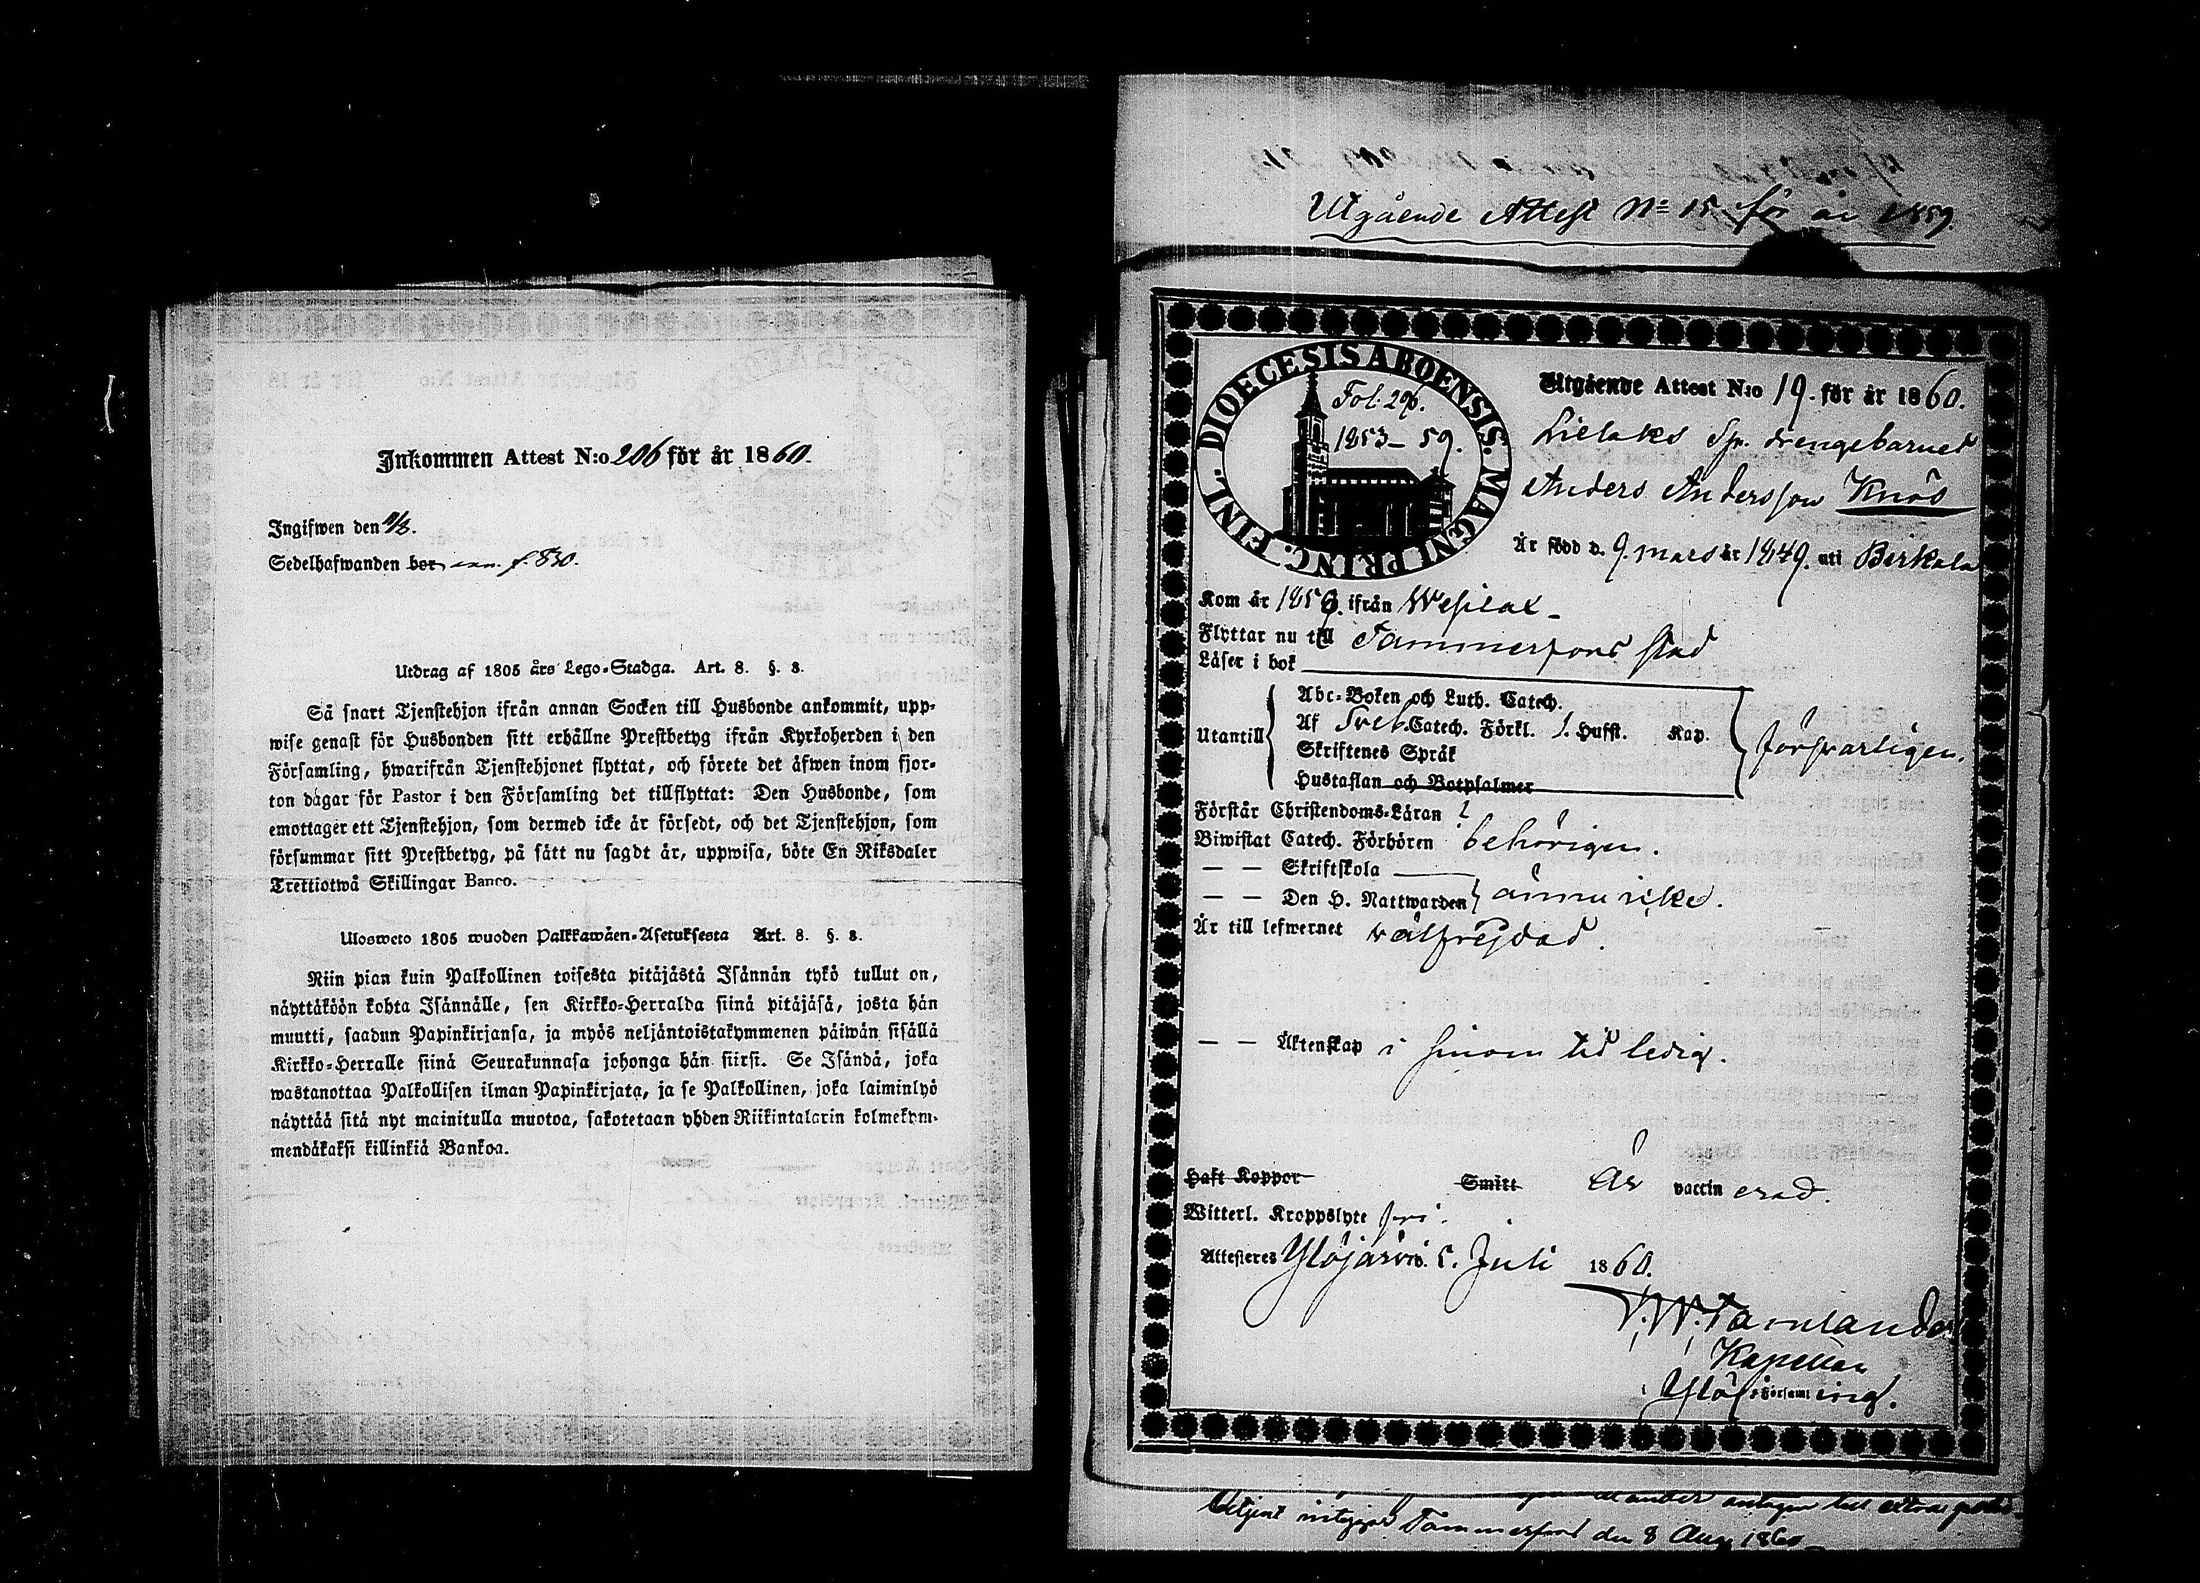 Inkommen Attest N:o 206 för år 1860.
Ingifwen den
Sedelhafwanden bor
Utdrag af 1805 års Lego-Stadga. Art. 8. §. 8.
Så snart Tjenstehjon ifrån annan Socken till Husbonde ankommit, upp-
wise genast för Husbonden sitt erhållne Prestbetyg ifrån Kyrkoherden i den
Församling, hwarifrån Tjenstehjonet flyttat, och förete det äfwen inom fjor-
ton dagar för Pastor i den Församling det tillflyttat: Den Husbonde, som
emottager ett Tjenstehjon, som dermed icke är försedt, och det Tjenstehjon, som
försummar sitt Prestbetyg, på sätt nu sagdt är, uppwisa, böte En Riksdaler
Trettiotwå Skillingar Banco.
Ulosweto 1805 wuoden Palkkawäen-Asetuksesta Art. 8. §. 8.
Niin pian kuin Palkollinen toisesta pitäjästä Isännän tykö tullut on,
näyttäköön kohta Isännälle, sen Kirkko-Herralda siinä pitäjäsä, josta hän
muutti, saadun Papinkirjansa, ja myös neljäntoistakymmenen päiwän sisällä
Kirkko-Herralle siinä Seurakunnasa johonga hän siirsi. Se Isändä, joka
wastanottaa Palkollisen ilman Papinkirjata, ja se Palkollinen, joka laiminlyö
näyttää sitä nyt mainitulla muotoa, sakotetaan yhden Riikintalarin kolmekym-
mendäkaksi killinkiä Bankoa.
Utgående Attest No 15 för år 1859.
DIOECESIS ABOENSIS. MAGNI PRINC. FINL.
Fol: 296.
1853-59.
Utgående Attest N:o 19. för år 1860.
Lielaks Sp. drengebarnet
Anders Andersson Knös
Är född d. 9. mars år 1849. uti Birkala
Kom år 1859. ifrån Wesilax
Flyttar nu till Tammerfors stad
Läser i bok
Utantill
Abc-Boken och Luth. Catech.
Af Sveb. Catech. Förkl. 1. Hufst. Kap.
Skriftenes Språk
Hustaflan och Botpsalmer
försvarligen.
Förstår Christendoms-Läran
Biwistat Catech. Förhören behörigen.
— — Skriftskola
— — Den H. Nattwarden ännu icke.
Är till lefwernet välfrejdad.
— — Äktenskap i sinom tid ledig.
Haft Koppor Smitt Är vaccinerad.
Witterl. Kroppslyte fri.
Attesteres Ylöjärvi d. 5. Juli 1860.
Tamlander
Kapellan
i Ylöj. Församling.
Tammerfors den 8 Aug 1860